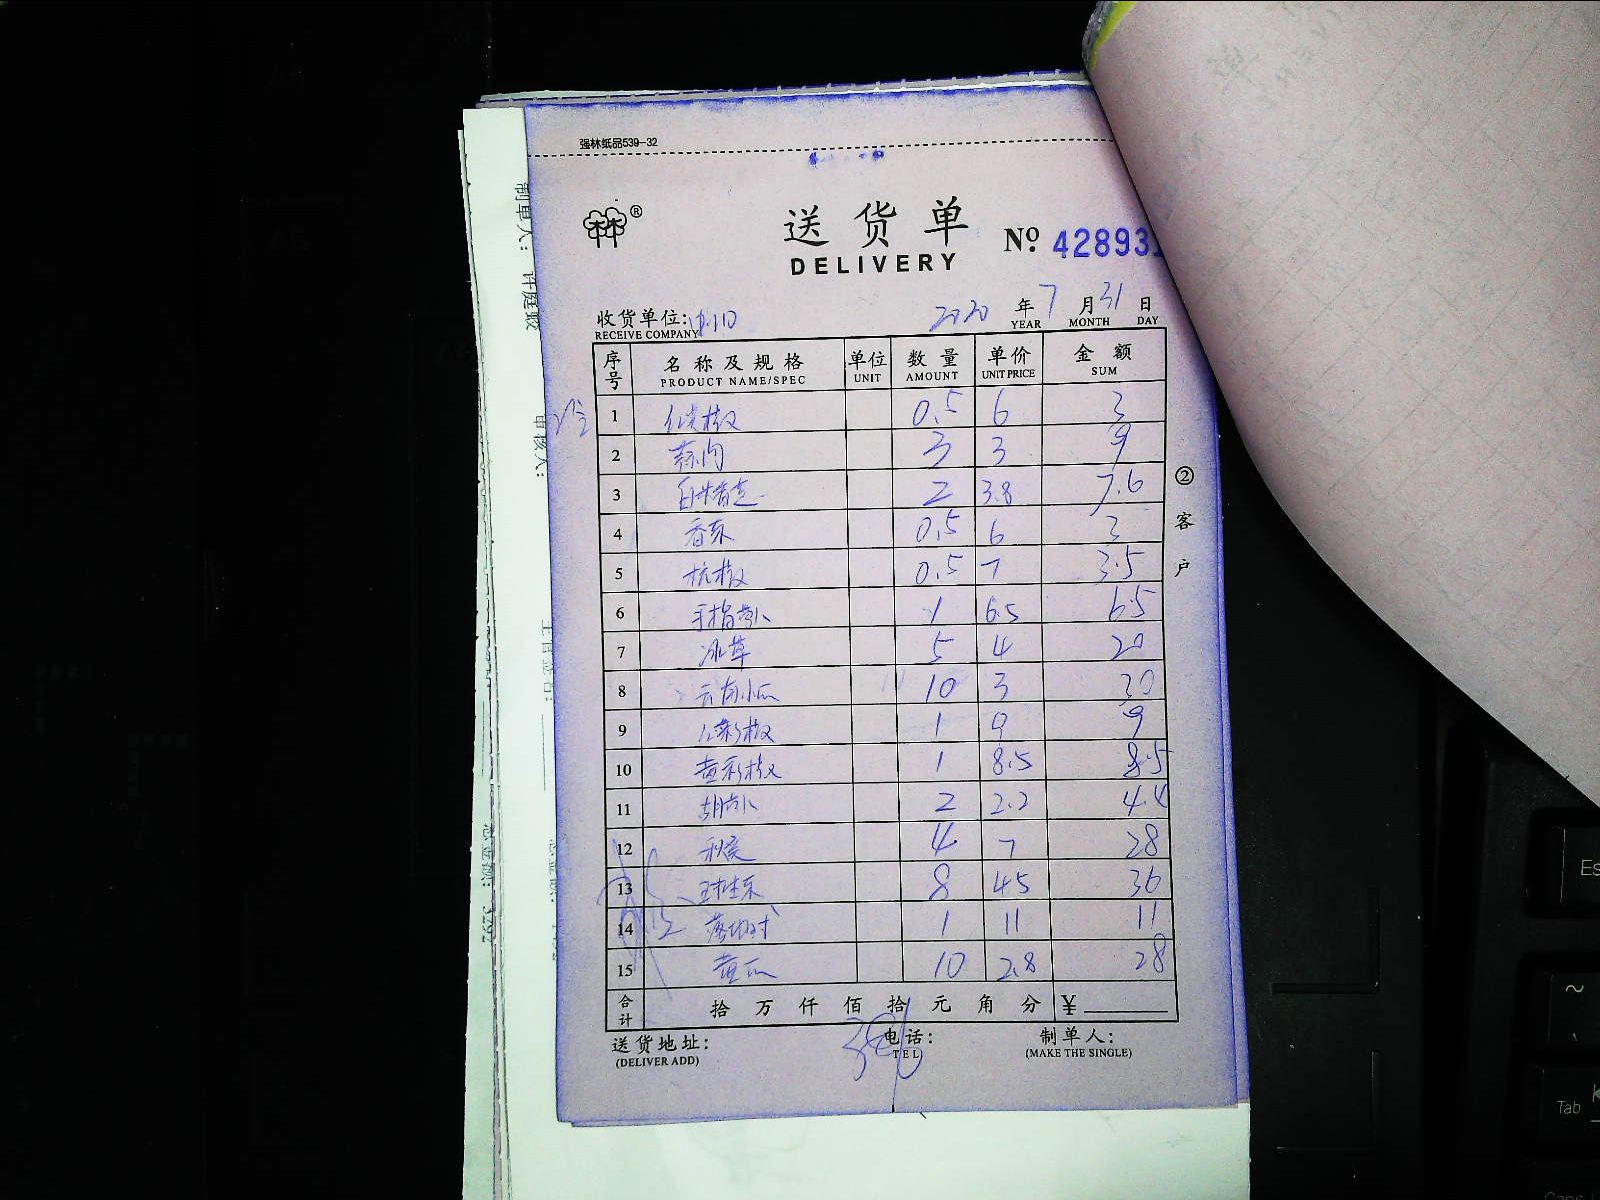 强林纸品539-32
®
送货单
DELIVERY
№ 42893
收货单位:
RECEIVE COMPANY
2020 年 7 月 31 日
YEAR MONTH DAY
序号 名称及规格 单位 数量 单价 金额
PRODUCT NAME/SPEC UNIT AMOUNT UNIT PRICE SUM
1 红尖椒 0.5 6 3
2 蒜肉 3 3 9
3 2 3.8 7.6
4 香菜 0.5 6 3
5 杭椒 0.5 7 3.5
6 手指萝卜 1 6.5 6.5
7 冰草 5 4 20
8 10 3 30
9 红彩椒 1 9 9
10 黄彩椒 1 8.5 8.5
11 胡萝卜 2 2.2 4.4
12 4 7 28
13 球生菜 8 4.5 36
14 1 11 11
15 黄瓜 10 2.8 28
合计 拾 万 仟 佰 拾 元 角 分 ¥
送货地址:
(DELIVER ADD)
电话:
TEL
制单人:
(MAKE THE SINGLE)
②客户
制单人:
审核人:
总金额: 3292
Tab